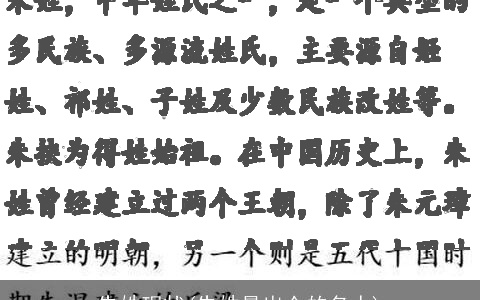 朱姓，中华姓氏之一，是一个典型的
多民族、多源流姓氏，主要源自姬
姓、祁姓、子姓及少数民族改姓等。
朱挟为得姓始祖。在中国历史上，朱
姓曾经建立过两个王朝，除了朱元璋
建立的明朝，另一个则是五代十国时